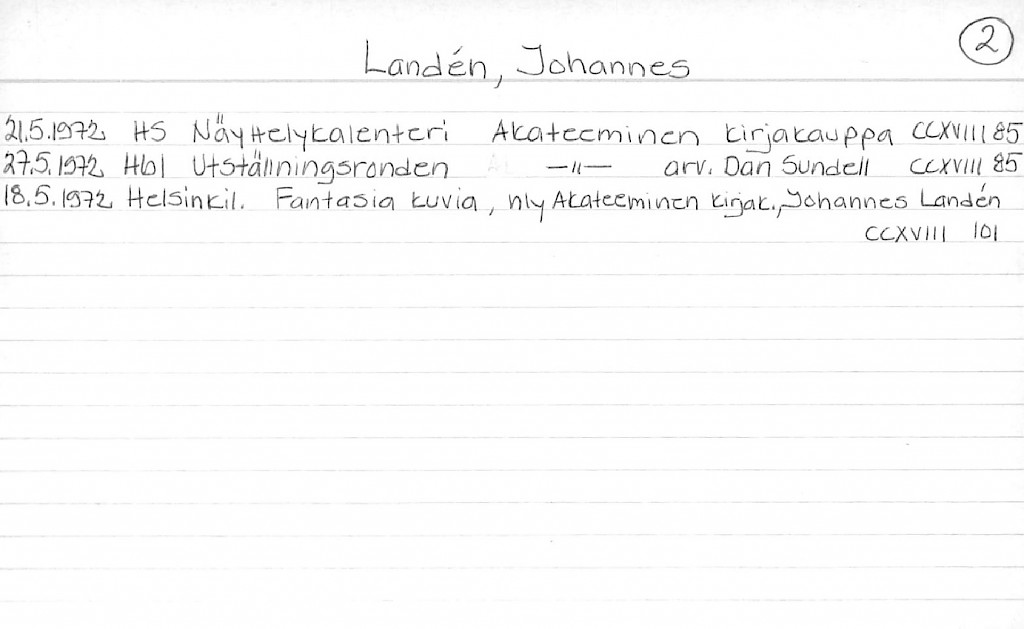 2
Landén, Johannes
21.5.1972 HS Näyttelykalenteri Akateeminen kirjakauppa CCXVIII 85
27.5.1972 Hbl Utställningsronden —〃— arv. Dan Sundell CCXVIII 85
18.5.1972 Helsinkil. Fantasia kuvia, nly Akateeminen kirjak., Johannes Landén
CCXVIII 101